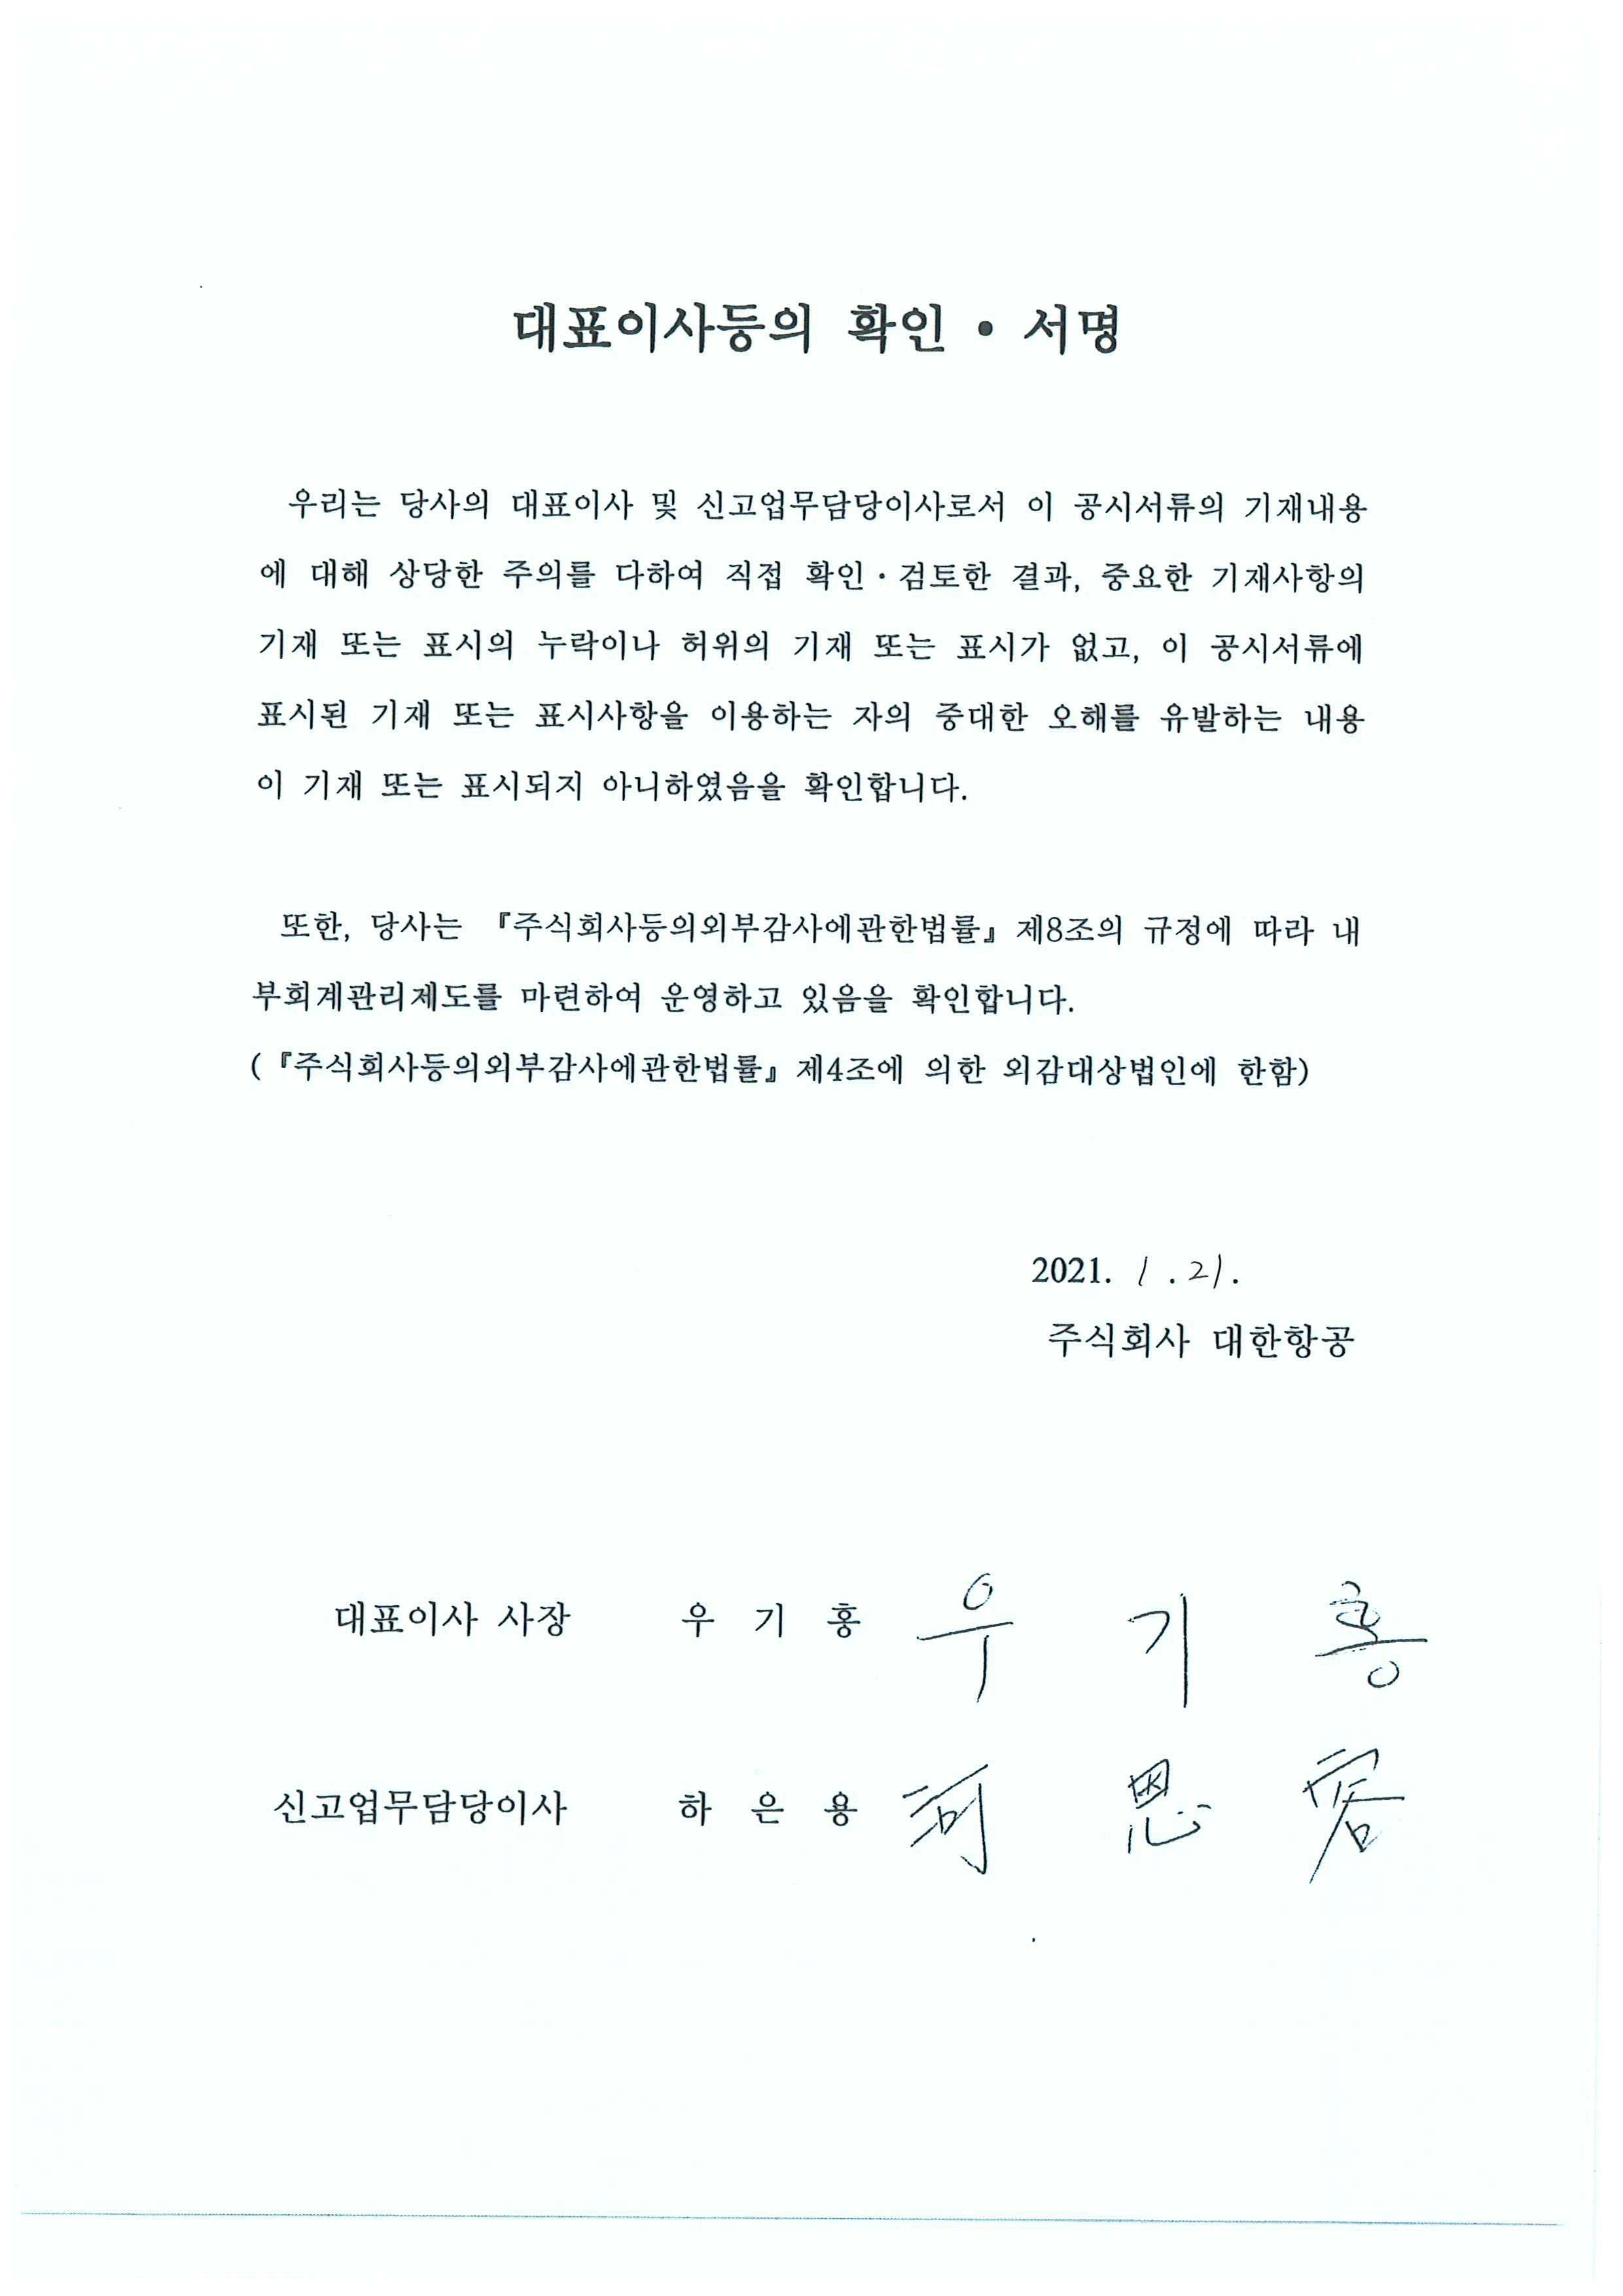 대표이사등의 확인 • 서명
우리는 당사의 대표이사 및 신고업무담당이사로서 이 공시서류의 기재내용
에 대해 상당한 주의를 다하여 직접 확인·검토한 결과, 중요한 기재사항의
기재 또는 표시의 누락이나 허위의 기재 또는 표시가 없고, 이 공시서류에
표시된 기재 또는 표시사항을 이용하는 자의 중대한 오해를 유발하는 내용
이 기재 또는 표시되지 아니하였음을 확인합니다.
또한, 당사는 『주식회사등의외부감사에관한법률』 제8조의 규정에 따라 내
부회계관리제도를 마련하여 운영하고 있음을 확인합니다.
(『주식회사등의외부감사에관한법률』 제4조에 의한 외감대상법인에 한함)
2021. 1 . 21.
주식회사 대한항공
대표이사 사장 우 기 홍 우 기 홍
신고업무담당이사 하 은 용 河 恩 容